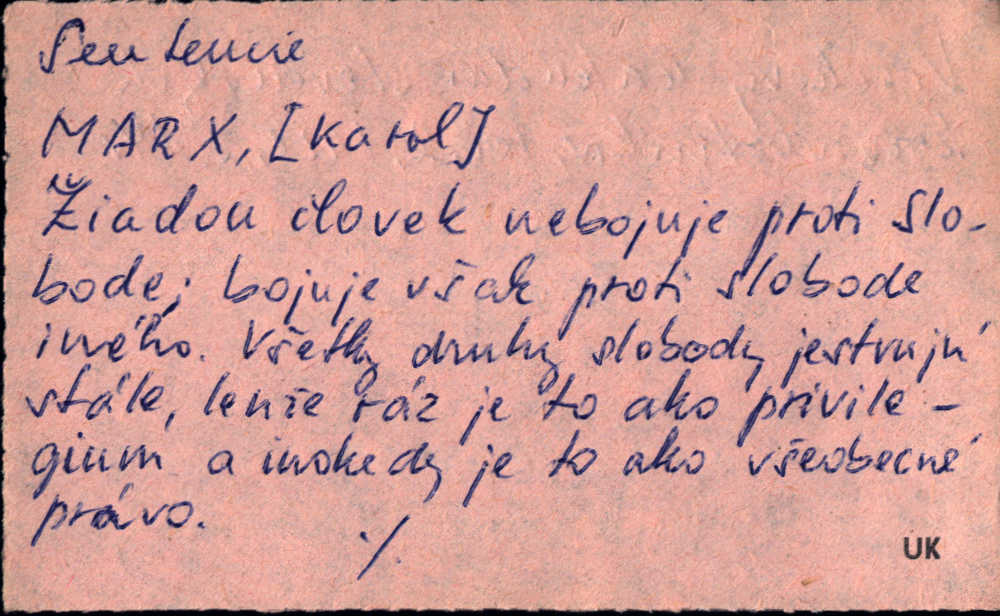 Sentencie
MARX, [Karol]
Žiadon človek nebojuje proti slo-
bode; bojuje však proti slobode
iného. Všetky druhy slobody jestvujú
stále, lenže ráz je to ako privile-
gium a inokedy je to ako všeobecné
právo.
./.
UK